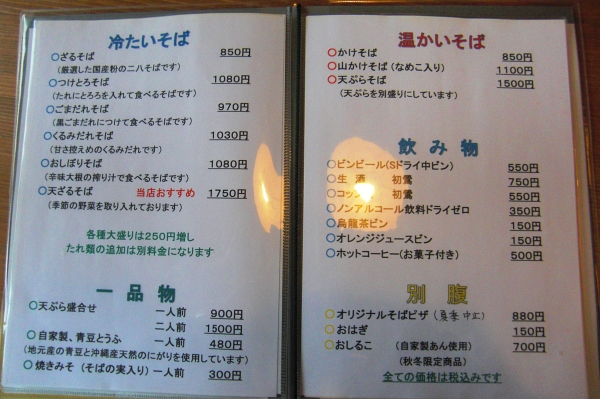 冷たいそば
○ざるそば 850円
(厳選した国産粉の二八そばです)
○つけとろそば 1080円
(たれにとろろを入れて食べるそばです)
○ごまだれそば 970円
(黒ごまだれにつけて食べるそばです)
○くるみだれそば 1030円
(甘さ控えめのくるみだれです)
○おしぼりそば 1080円
(辛味大根の搾り汁で食べるそばです)
○天ざるそば 当店おすすめ 1750円
(季節の野菜を取り入れております)
各種大盛りは250円増し
たれ類の追加は別料金になります
一品物
○天ぷら盛合せ 一人前 900円
二人前 1500円
○自家製、青豆とうふ 一人前 480円
(地元産の青豆と沖縄産天然のにがりを使用しています)
○焼きみそ (そばの実入り) 一人前 300円
温かいそば
○かけそば 850円
○山かけそば (なめこ入り) 1100円
○天ぷらそば 1500円
(天ぷらを別盛りにしています)
飲み物
○ビンビール(Sドライ中ビン) 550円
○生 酒 初鶯 750円
○コップ酒 初鶯 550円
○ノンアルコール飲料ドライゼロ 350円
○烏龍茶ビン 150円
○オレンジジュースビン 150円
○ホットコーヒー(お菓子付き) 500円
別腹
○オリジナルそばピザ (夏季中止) 880円
○おはぎ 150円
○おしるこ (自家製あん使用) 700円
(秋冬限定商品)
全ての価格は税込みです